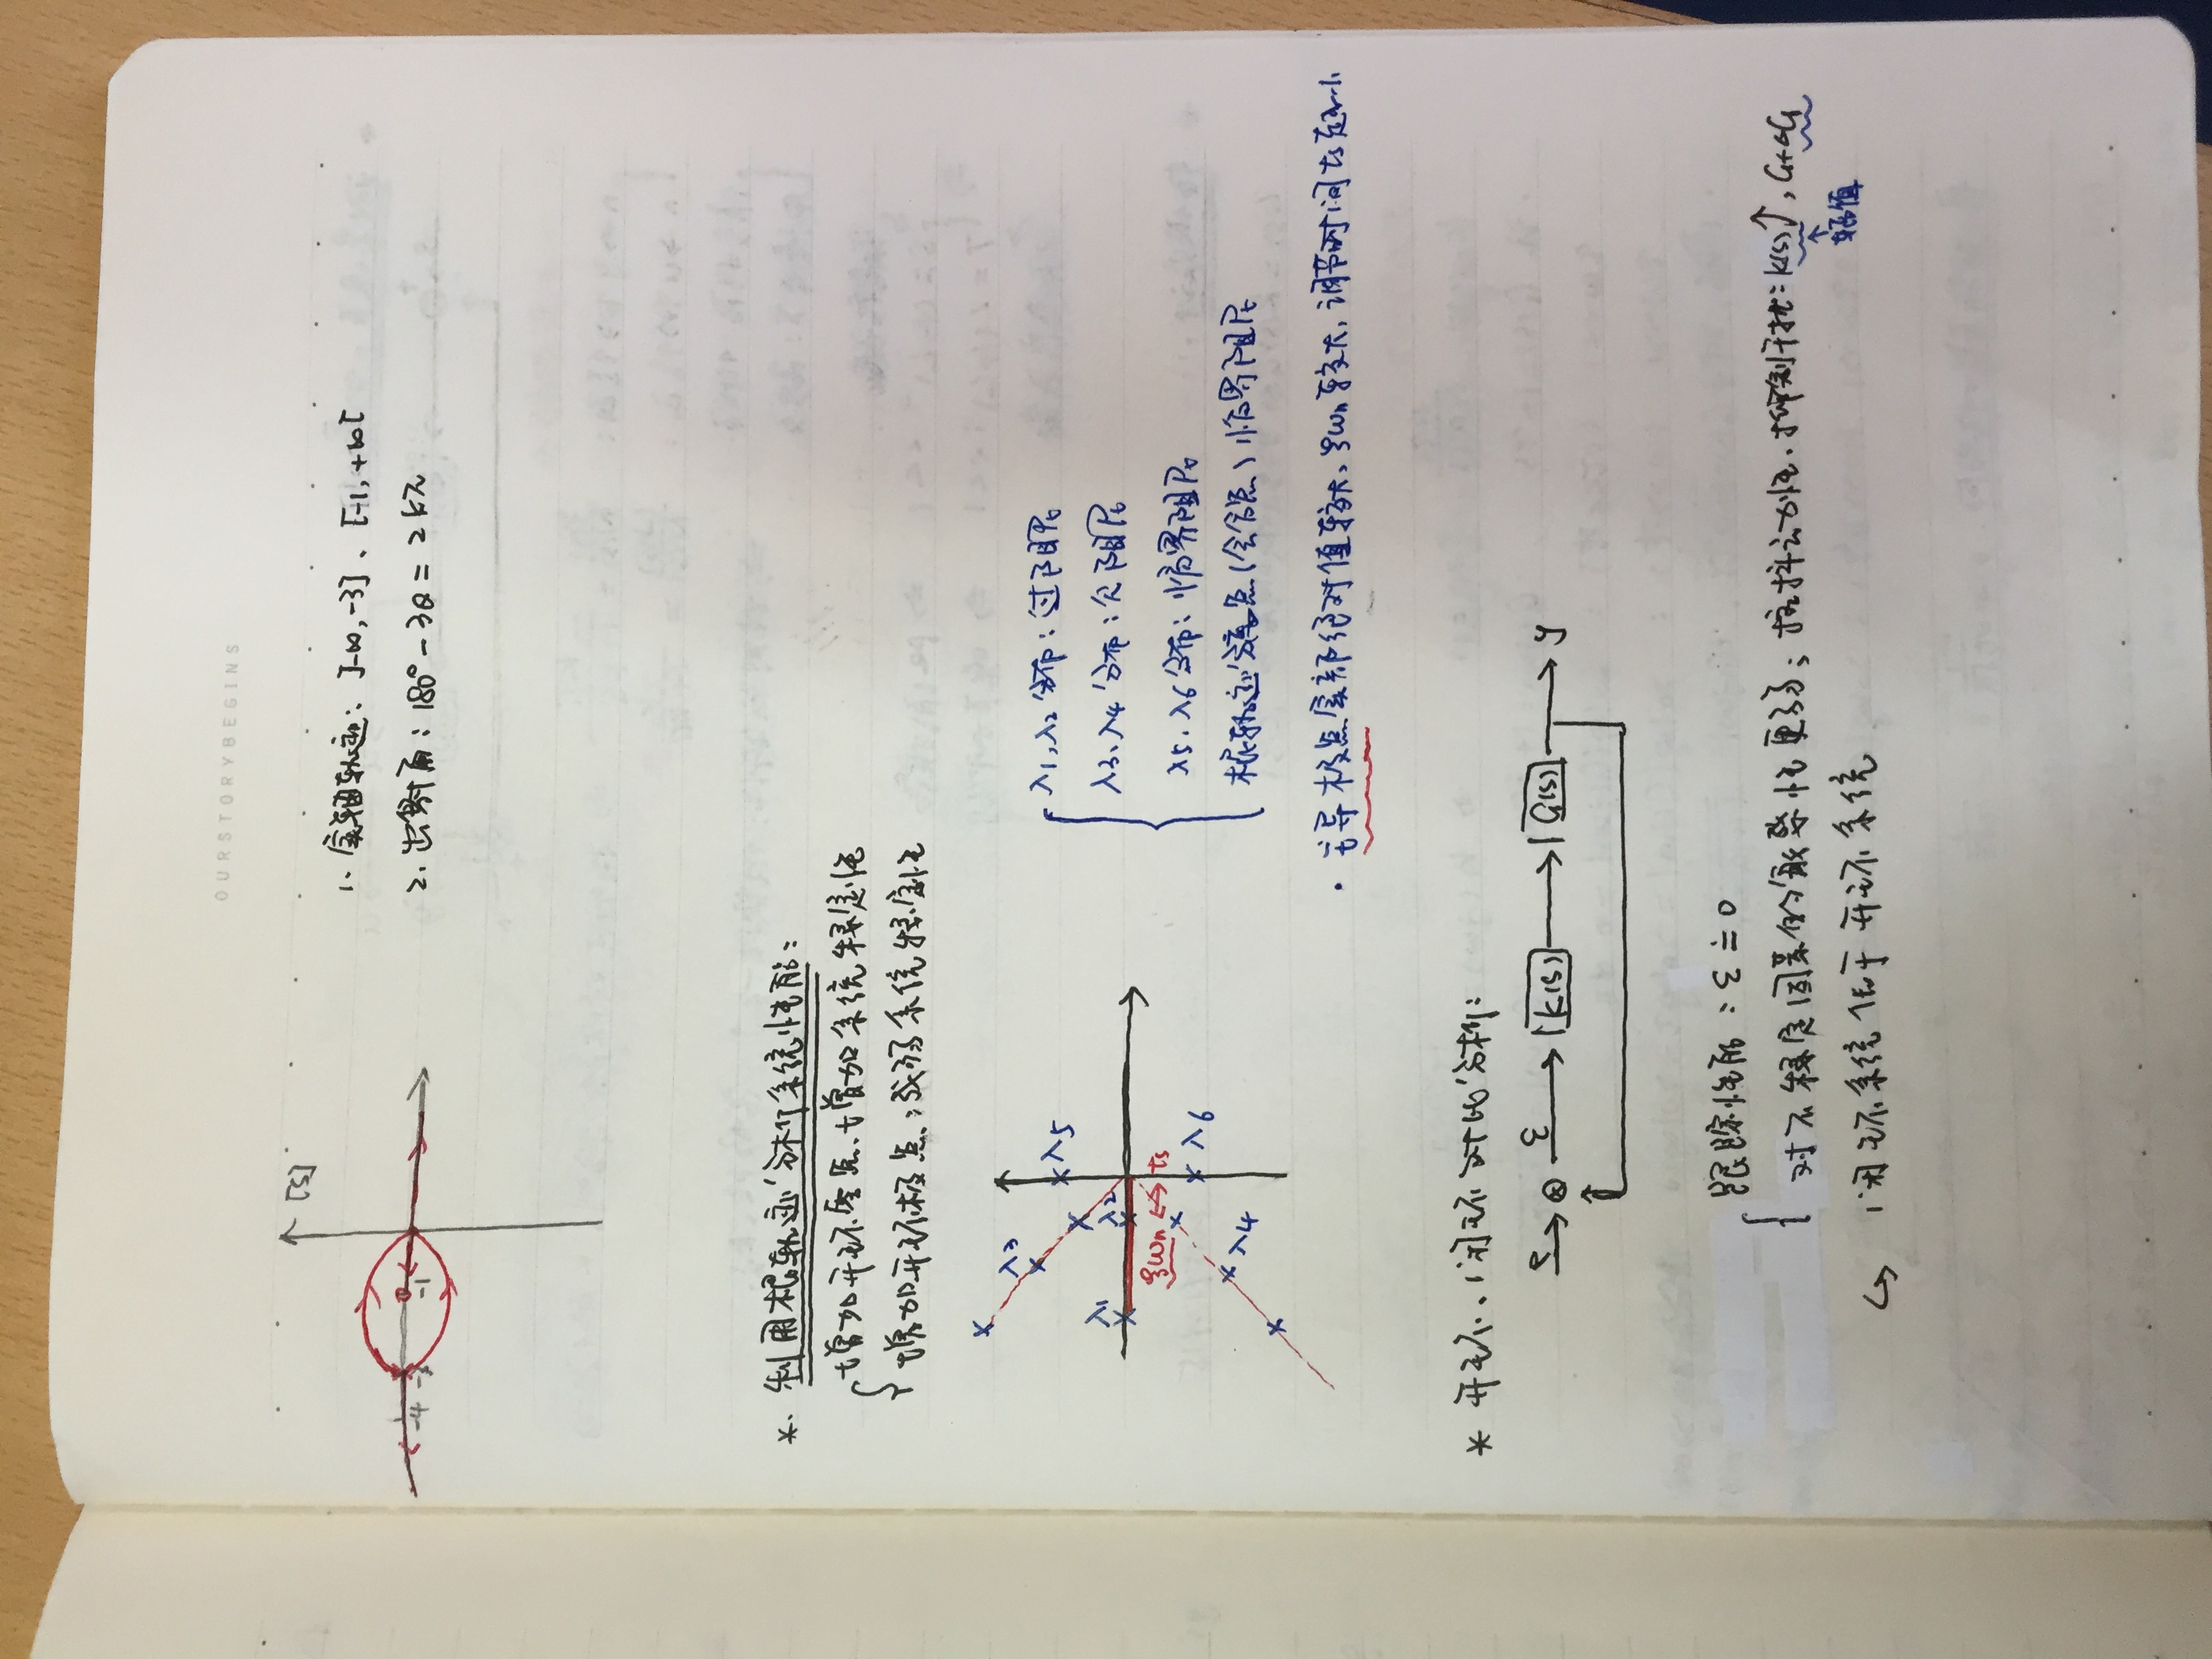 OURSTORYBEGINS
[S]
-4 -3 -1
1. 实轴轨迹：]-∞, -3]、[-1, +∞[
2. 出射角：180° - 3θ = 2kπ
*. 利用根轨迹分析系统性能：
增加开环零点、增加系统稳定性
增加开环极点：减弱系统稳定性
λ3
λ5
λ1
λ2
ξωn ↔ ts
λ6
λ4
λ1, λ2 分布：过阻尼
λ3、λ4 分布：欠阻尼
λ5、λ6 分布：临界阻尼
根轨迹分离点(会合点) 临界阻尼
· 主导极点实部绝对值较大, ξωn 较大, 调节时间 ts 越小
* 开环、闭环对比分析：
e ε K(s) G(s) y
跟踪性能：ε ≐ 0
对不稳定因素的敏感性更弱；抗抖动性、抑制干扰：K(s)↑, G+ΔG
↑
幅值
↪ 闭环系统优于开环系统